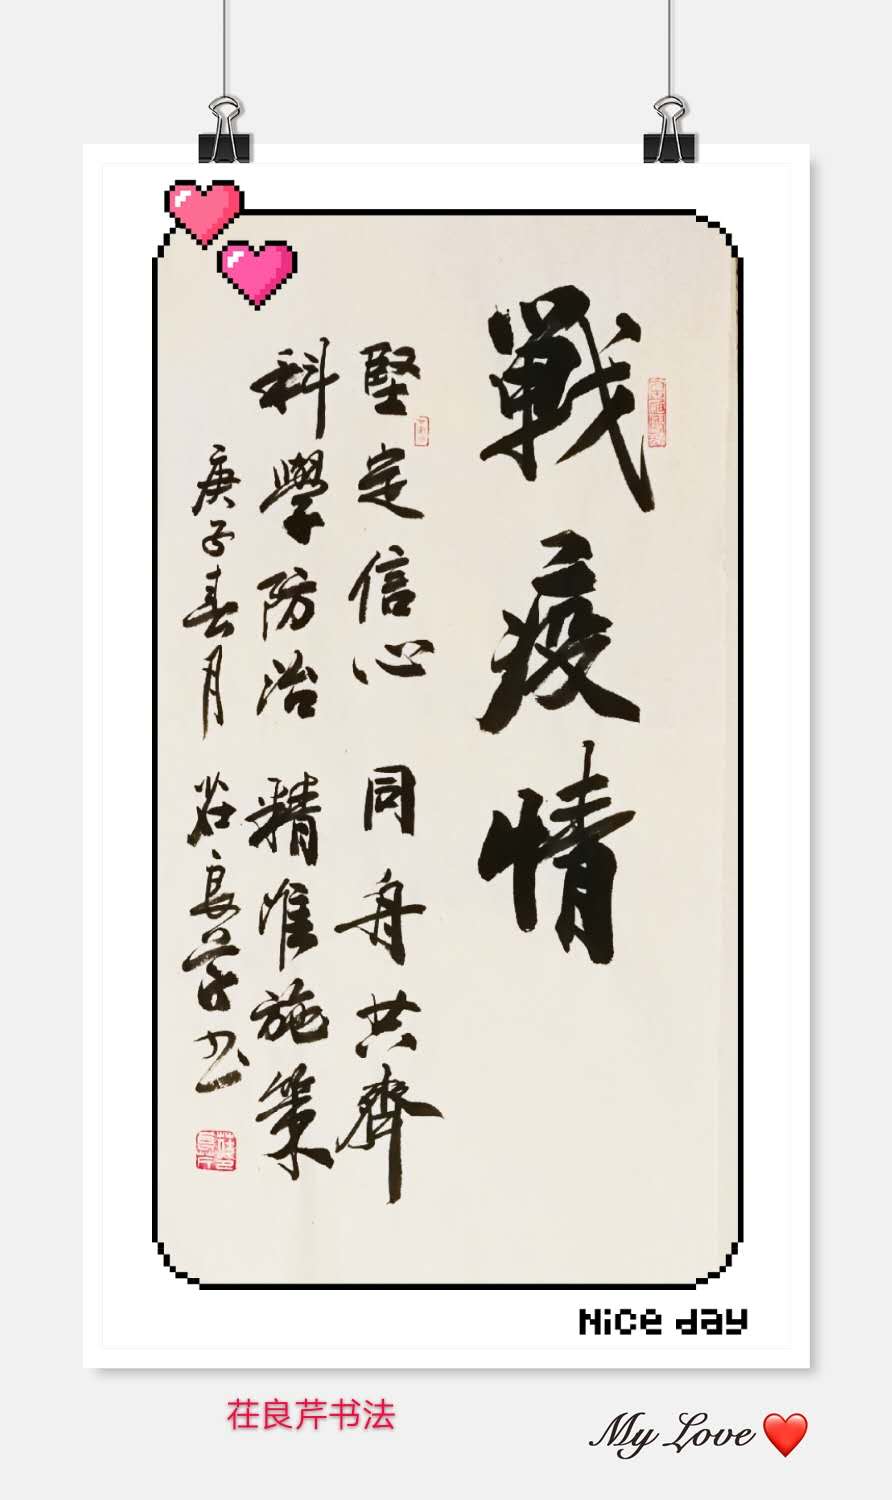 戰疫情
堅定信心 同舟共齊
科學防治 精准施策
庚子春月 茌良芹书
Nice day
茌良芹书法
My Love